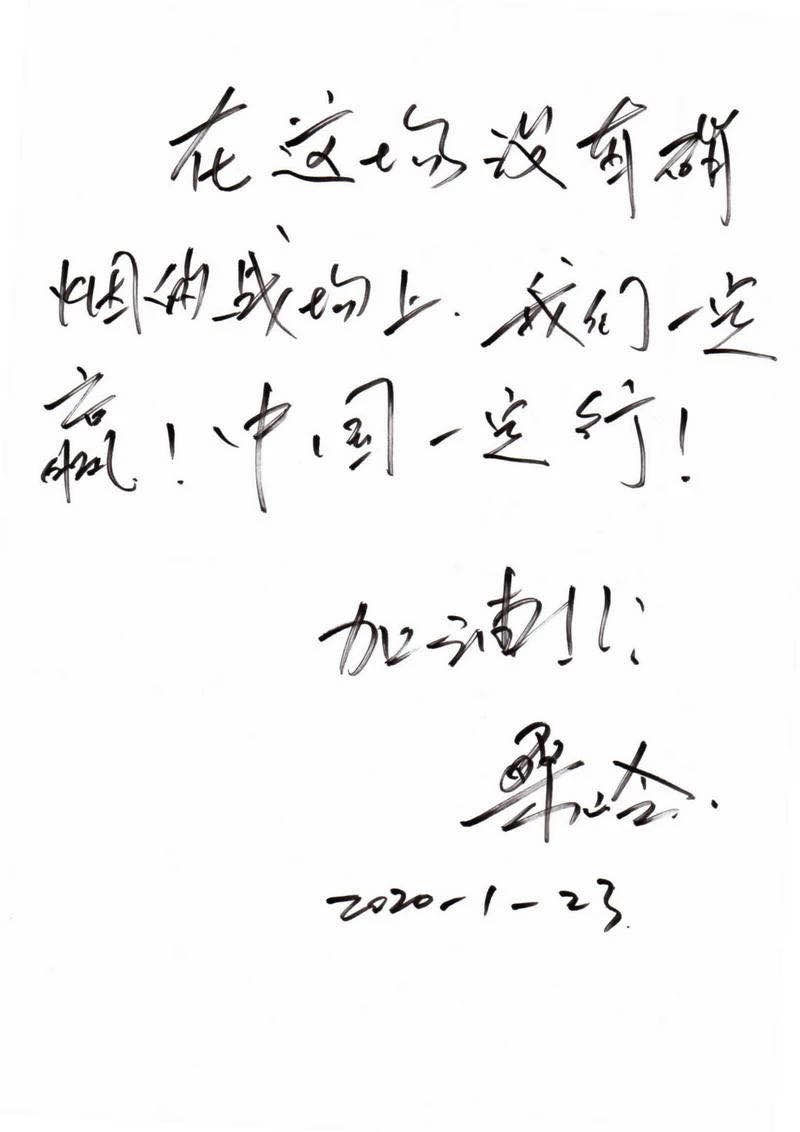 在这场没有硝
烟的战场上.我们一定
赢!中国一定行!
加油!!!
2020-1-23.